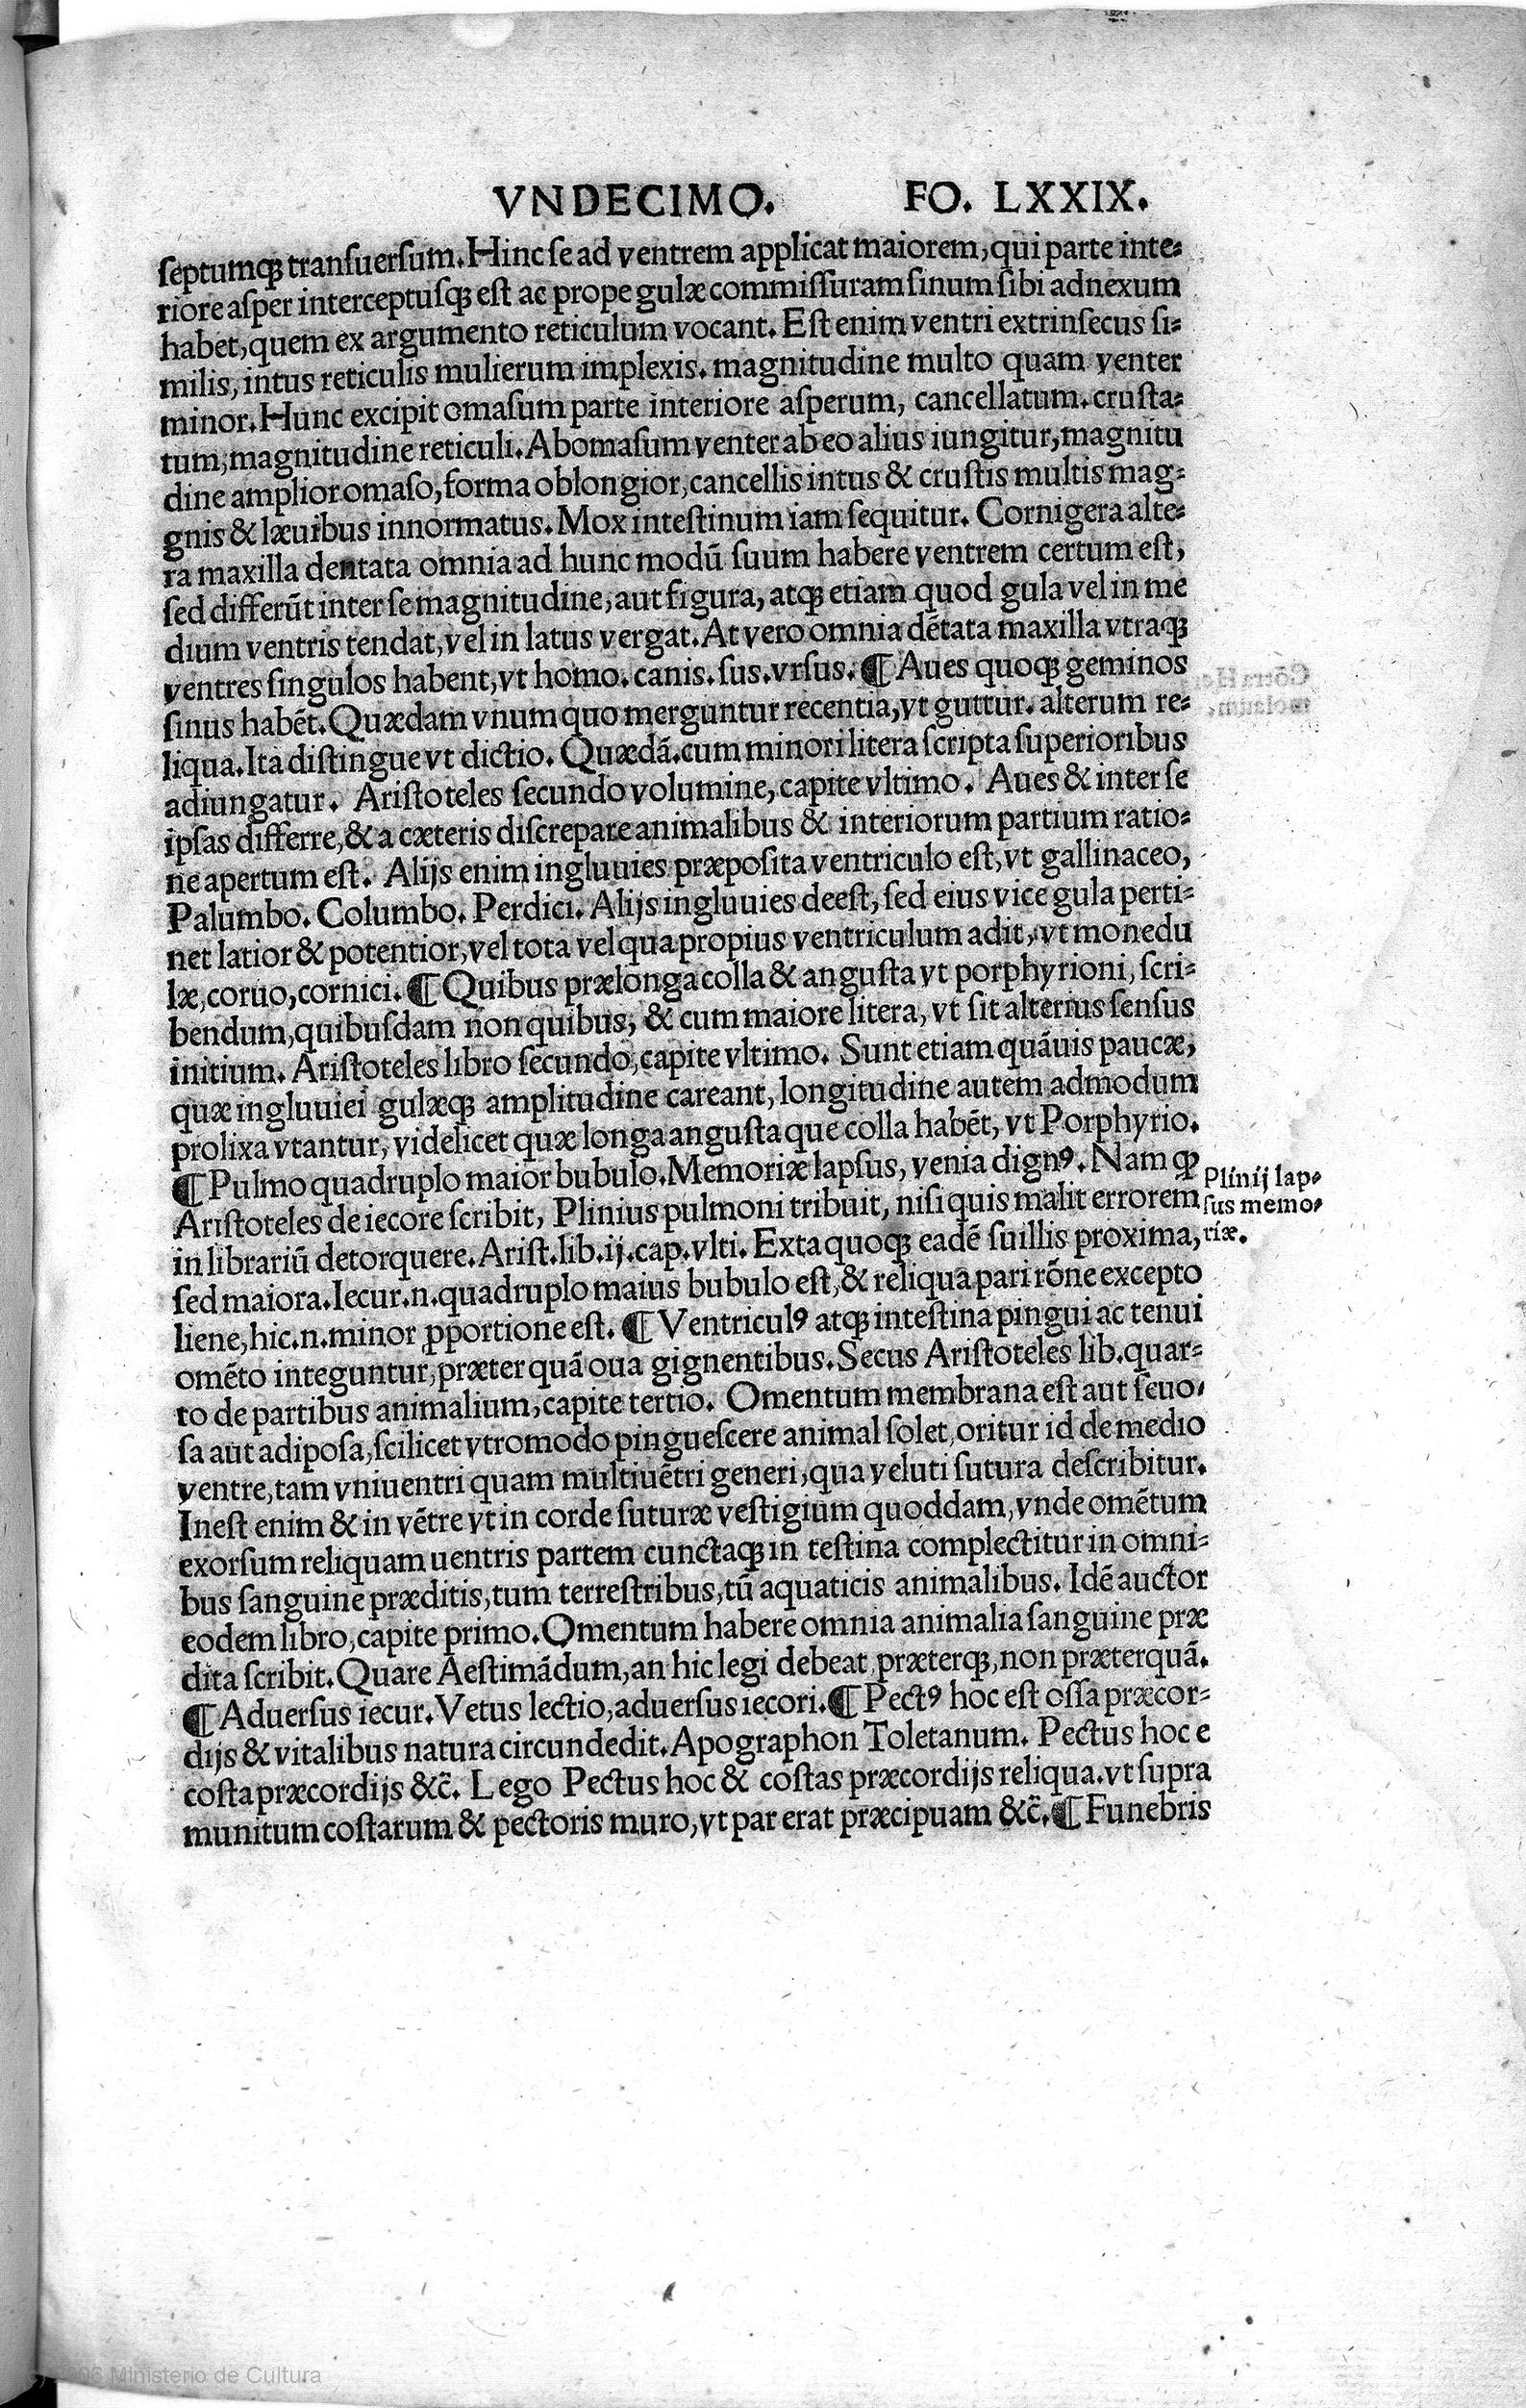 VNDECIMO. FO. LXXIX.
ſeptumqꝫ tranſuerſum. Hinc ſe ad ventrem applicat maiorem, qui parte inte-
riore aſper interceptuſqꝫ eſt ac prope gulæ commiſſuram ſinum ſibi adnexum
habet, quem ex argumento reticulum vocant. Eſt enim ventri extrinſecus ſi-
milis, intus reticulis mulierum implexis. magnitudine multo quam venter
minor. Hunc excipit omaſum parte interiore aſperum, cancellatum. cruſta-
tum, magnitudine reticuli. Abomaſum venter ab eo alius iungitur, magnitu
dine amplior omaſo, forma oblongior, cancellis intus & cruſtis multis mag-
gnis & læuibus innormatus. Mox inteſtinum iam ſequitur. Cornigera alte-
ra maxilla dentata omnia ad hunc modū ſuum habere ventrem certum eſt,
ſed differūt inter ſe magnitudine, aut figura, atqꝫ etiam quod gula vel in me
dium ventris tendat, vel in latus vergat. At vero omnia dētata maxilla vtraqꝫ
ventres ſingulos habent, vt homo. canis. ſus. vrſus. ¶ Aues quoqꝫ geminos
ſinus habēt. Quædam vnum quo merguntur recentia, vt guttur. alterum re-
liqua. Ita diſtingue vt dictio. Quædā. cum minori litera ſcripta ſuperioribus
adiungatur. Ariſtoteles ſecundo volumine, capite vltimo. Aues & inter ſe
ipſas differre, & a cæteris diſcrepare animalibus & interiorum partium ratio-
ne apertum eſt. Alijs enim ingluuies præpoſita ventriculo eſt, vt gallinaceo,
Palumbo. Columbo. Perdici. Alijs ingluuies deeſt, ſed eius vice gula perti-
net latior & potentior, vel tota vel qua propius ventriculum adit, vt monedu
læ, coruo, cornici. ¶ Quibus prælonga colla & anguſta vt porphyrioni, ſcri-
bendum, quibuſdam non quibus, & cum maiore litera, vt ſit alterius ſenſus
initium. Ariſtoteles libro ſecundo, capite vltimo. Sunt etiam quāuis paucæ,
quæ ingluuiei gulæqꝫ amplitudine careant, longitudine autem admodum
prolixa vtantur, videlicet quæ longa anguſta que colla habēt, vt Porphyrio.
¶ Pulmo quadruplo maior bubulo. Memoriæ lapſus, venia dignꝰ. Nam qꝫ
Ariſtoteles de iecore ſcribit, Plinius pulmoni tribuit, niſi quis malit errorem
in librariū detorquere. Ariſt. lib. ij. cap. vlti. Exta quoqꝫ eadē ſuillis proxima,
ſed maiora. Iecur. n. quadruplo maius bubulo eſt, & reliqua pari rōne excepto
liene, hic. n. minor ꝓportione eſt. ¶ Ventriculꝰ atqꝫ inteſtina pingui ac tenui
omēto integuntur, præter quā oua gignentibus. Secus Ariſtoteles lib. quar-
to de partibus animalium, capite tertio. Omentum membrana eſt aut ſeuo-
ſa aut adipoſa, ſcilicet vtromodo pingueſcere animal ſolet, oritur id de medio
ventre, tam vniuentri quam multiuētri generi, qua veluti ſutura deſcribitur.
Ineſt enim & in vētre vt in corde ſuturæ veſtigium quoddam, vnde omētum
exorſum reliquam uentris partem cunctaqꝫ in teſtina complectitur in omni-
bus ſanguine præditis, tum terreſtribus, tū aquaticis animalibus. Idē auctor
eodem libro, capite primo. Omentum habere omnia animalia ſanguine præ
dita ſcribit. Quare Aeſtimādum, an hic legi debeat præterqꝫ, non præterquā.
¶ Aduerſus iecur. Vetus lectio, aduerſus iecori. ¶ Pectꝰ hoc eſt oſſa præcor-
dijs & vitalibus natura circundedit. Apographon Toletanum. Pectus hoc e
coſta præcordijs &c̄. Lego Pectus hoc & coſtas præcordijs reliqua. vt ſupra
munitum coſtarum & pectoris muro, vt par erat præcipuam &c̄. ¶ Funebris
Plinij lap-
ſus memo-
riæ.
2006 Ministerio de Cultura